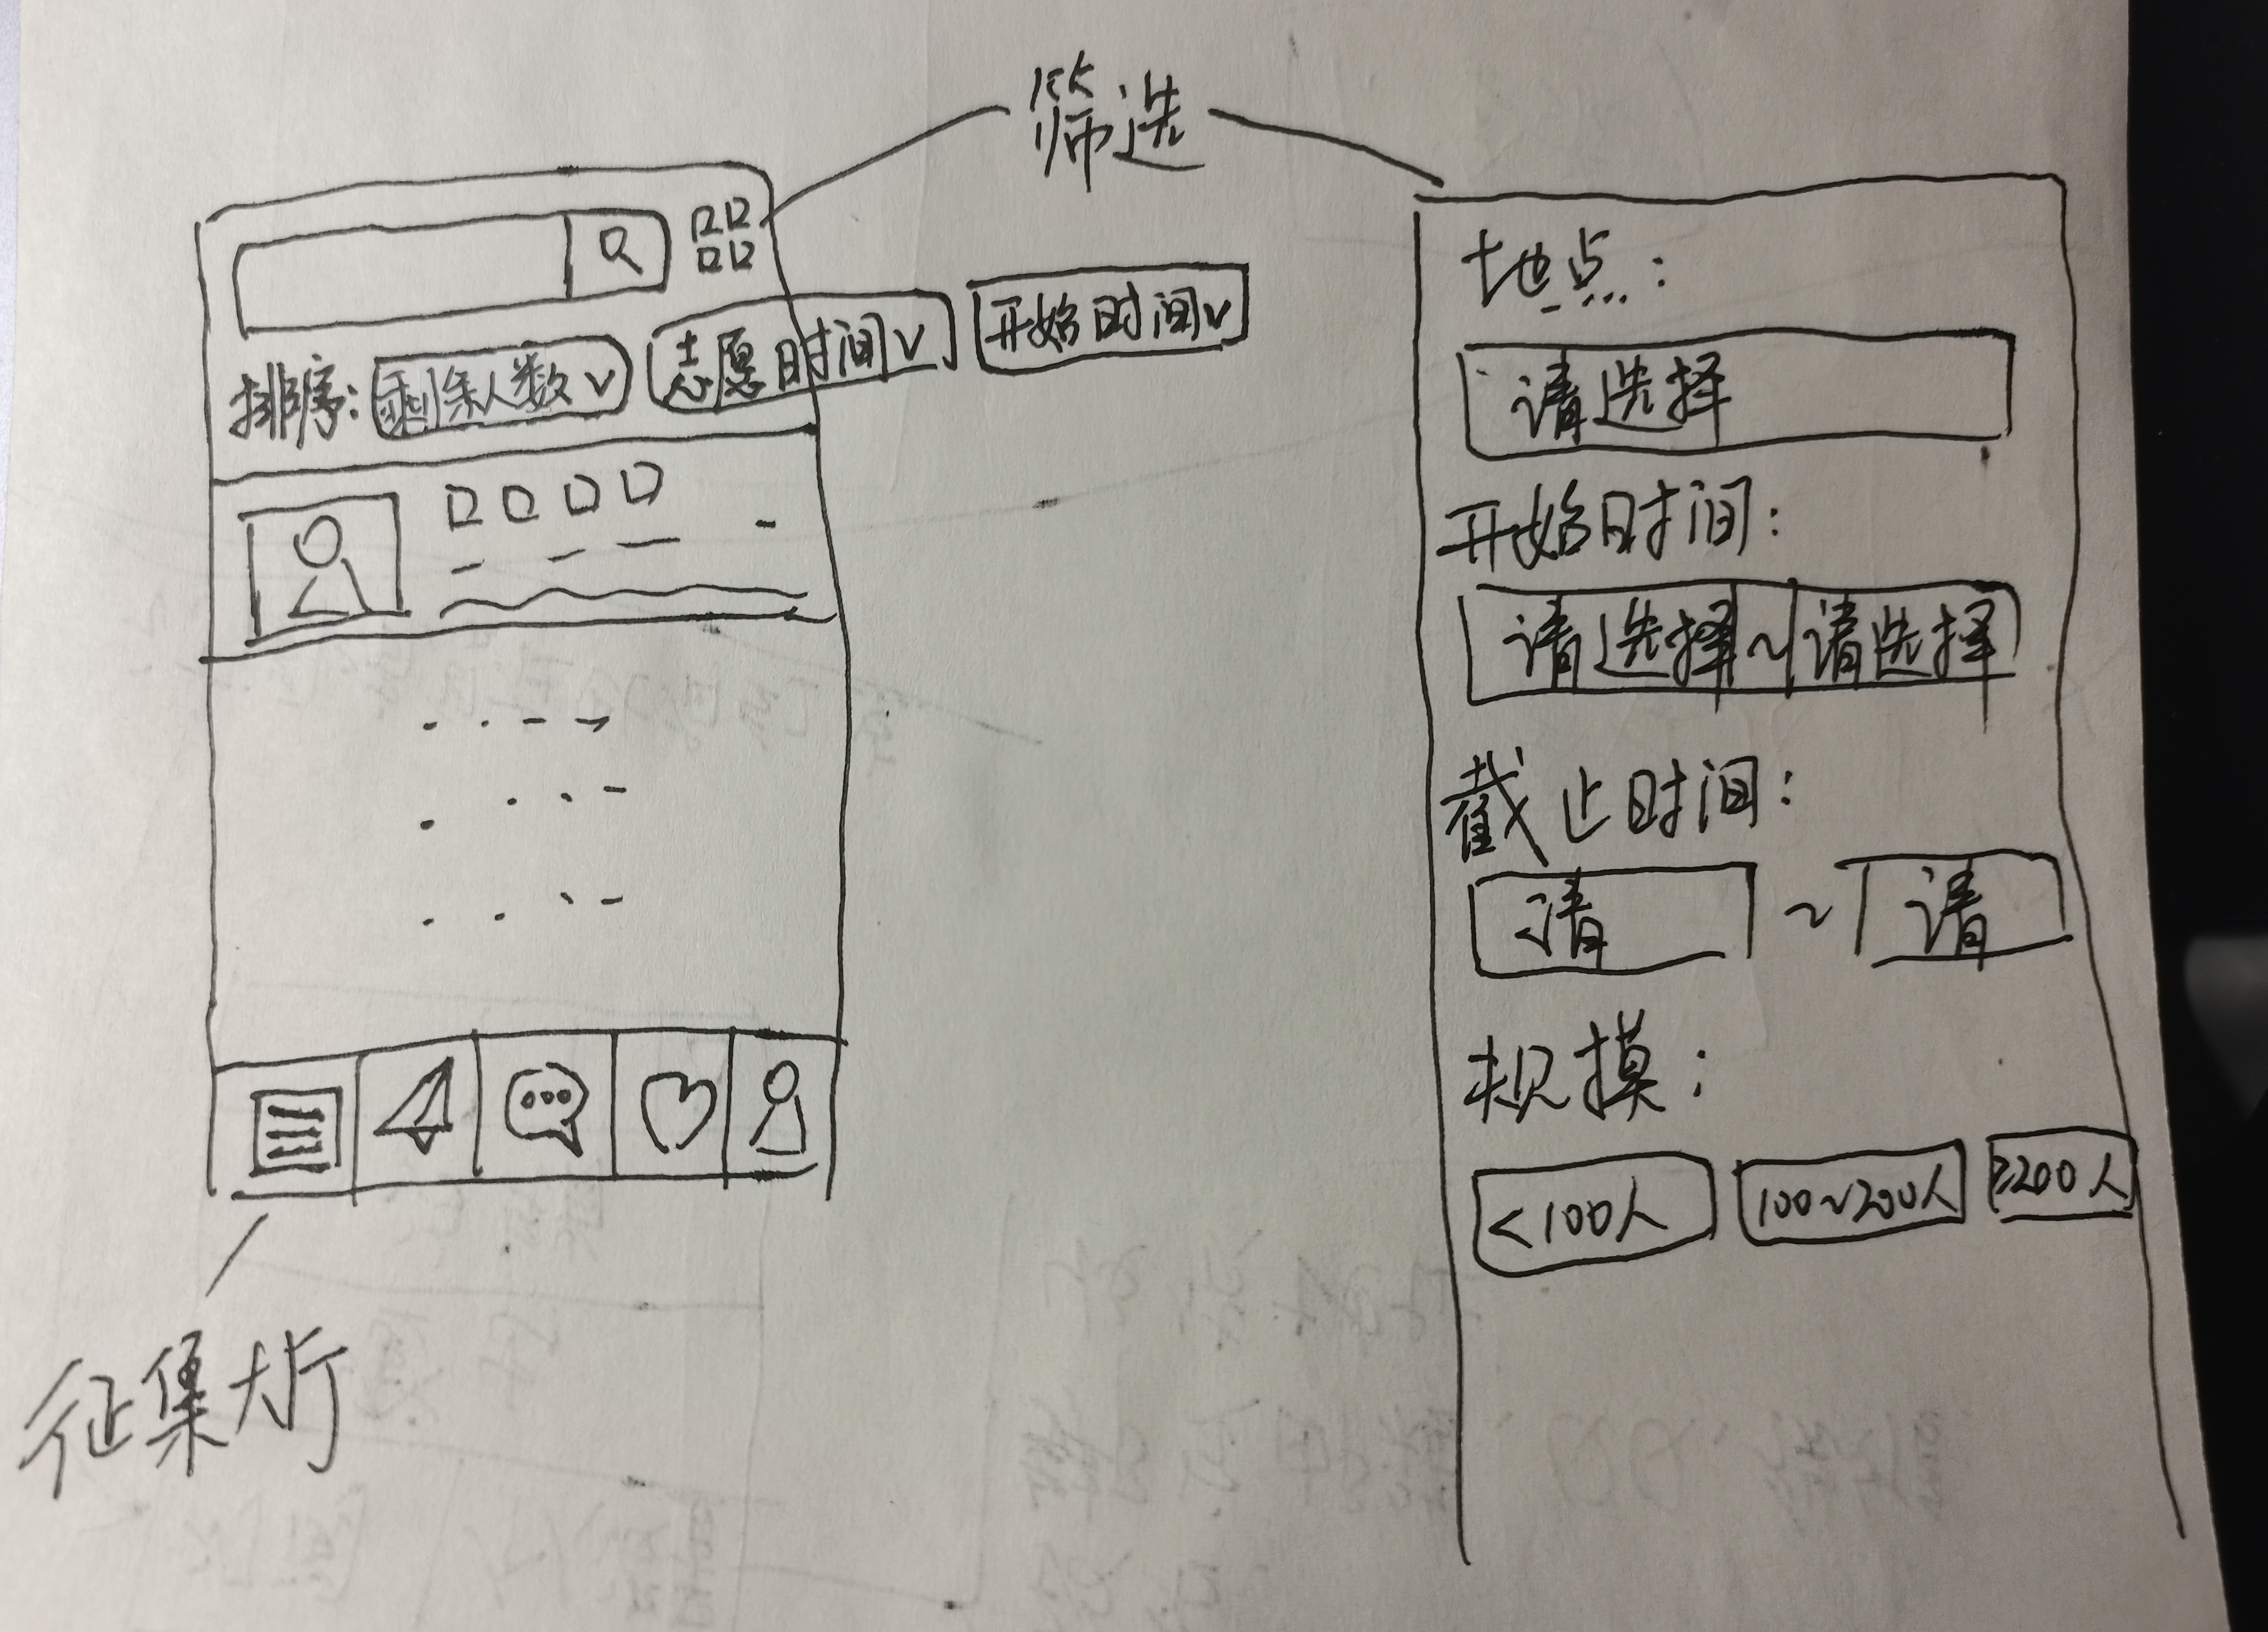 筛选
排序: 剩余人数∨ 志愿时间∨ 开始时间∨
征集大厅
地点:
请选择
开始时间:
请选择~请选择
截止时间:
请 ~ 请
规摸:
<100人 100~200人 ≥200人